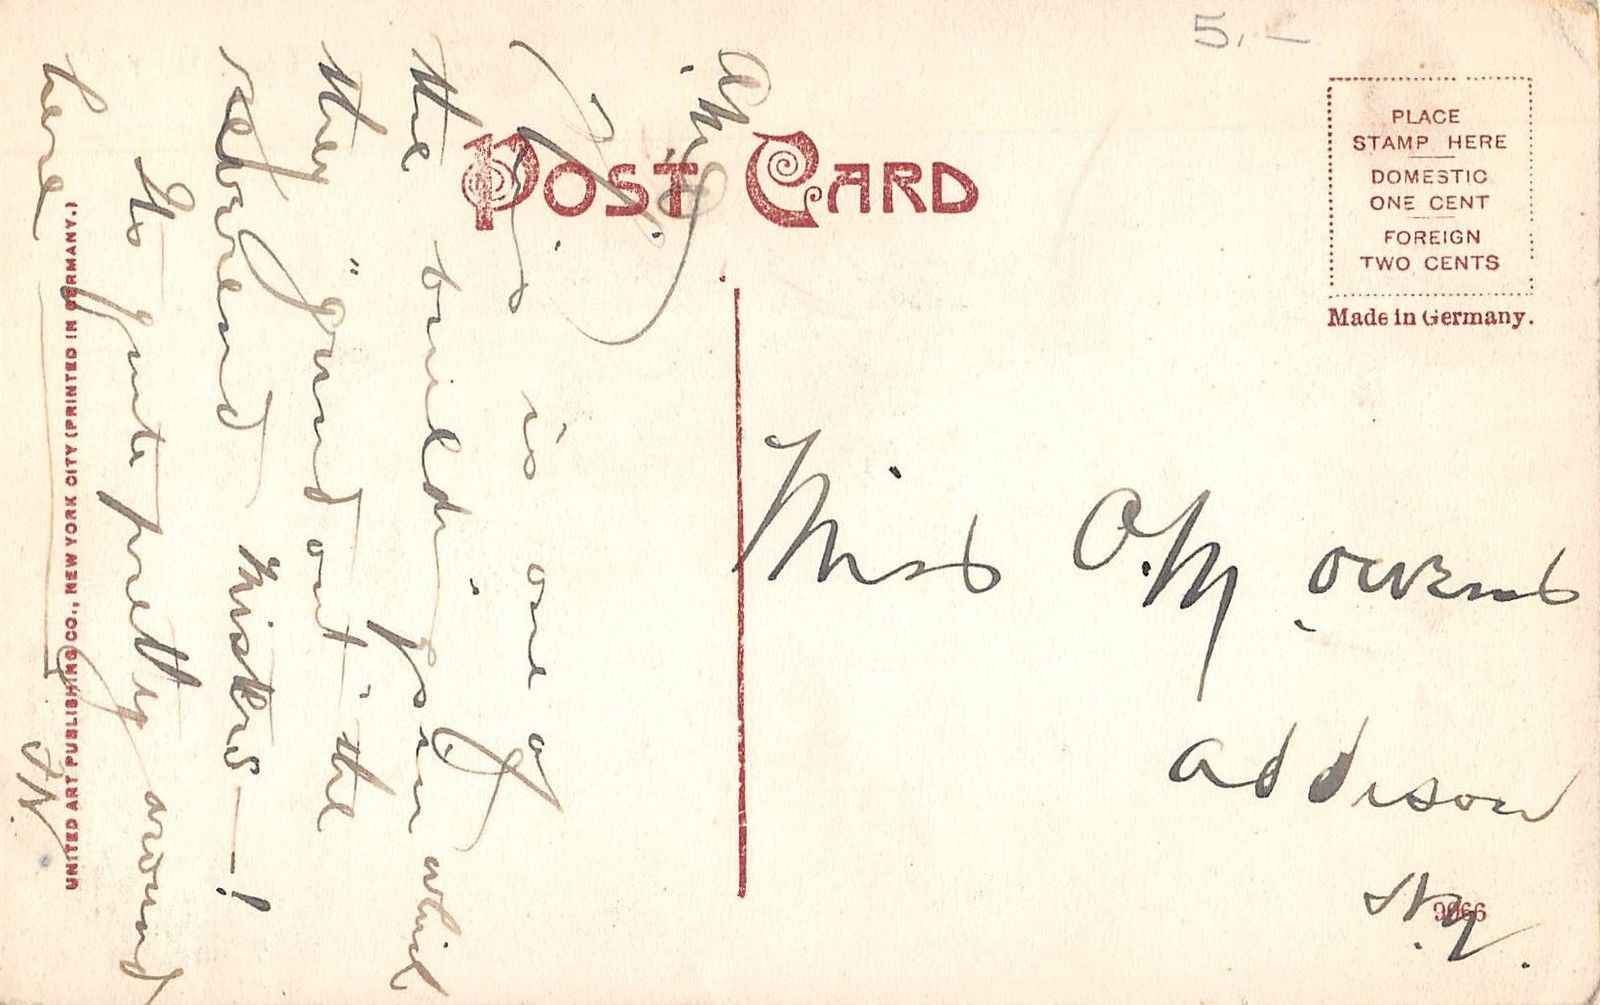 5.—
POST CARD
PLACE
STAMP HERE
DOMESTIC
ONE CENT
FOREIGN
TWO CENTS
Made in Germany.
A.M.O.
This is one of
the buildings in which
they "grind out" the
reverend Misters—!
Its quite pretty around
here
J.W.
Miss A.M. Owens
Addison
N.Y.
9066
UNITED ART PUBLISHING CO., NEW YORK CITY (PRINTED IN GERMANY.)